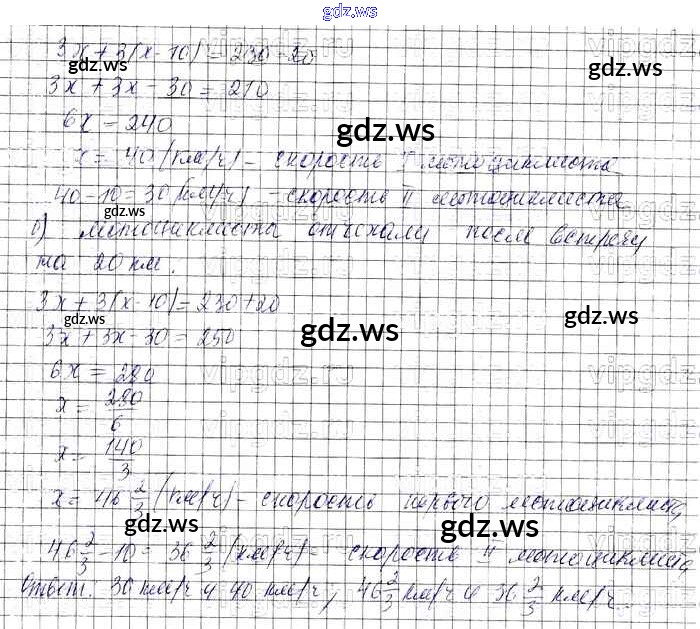 gdz.ws
3x + 3(x - 10) = 230 - 20
3x + 3x - 30 = 210
6x = 240
x = 40 (км/ч) - скорость I мотоциклиста
40 - 10 = 30 (км/ч) - скорость II мотоциклиста
б) мотоциклисты отъехали после встречи
на 20 км.
3x + 3(x - 10) = 230 + 20
3x + 3x - 30 = 250
6x = 280
x = 280/6
x = 140/3
x = 46 2/3 (км/ч) - скорость первого мотоциклиста
46 2/3 - 10 = 36 2/3 (км/ч) - скорость II мотоциклиста
Ответ: 30 км/ч и 40 км/ч; 46 2/3 км/ч и 36 2/3 км/ч.